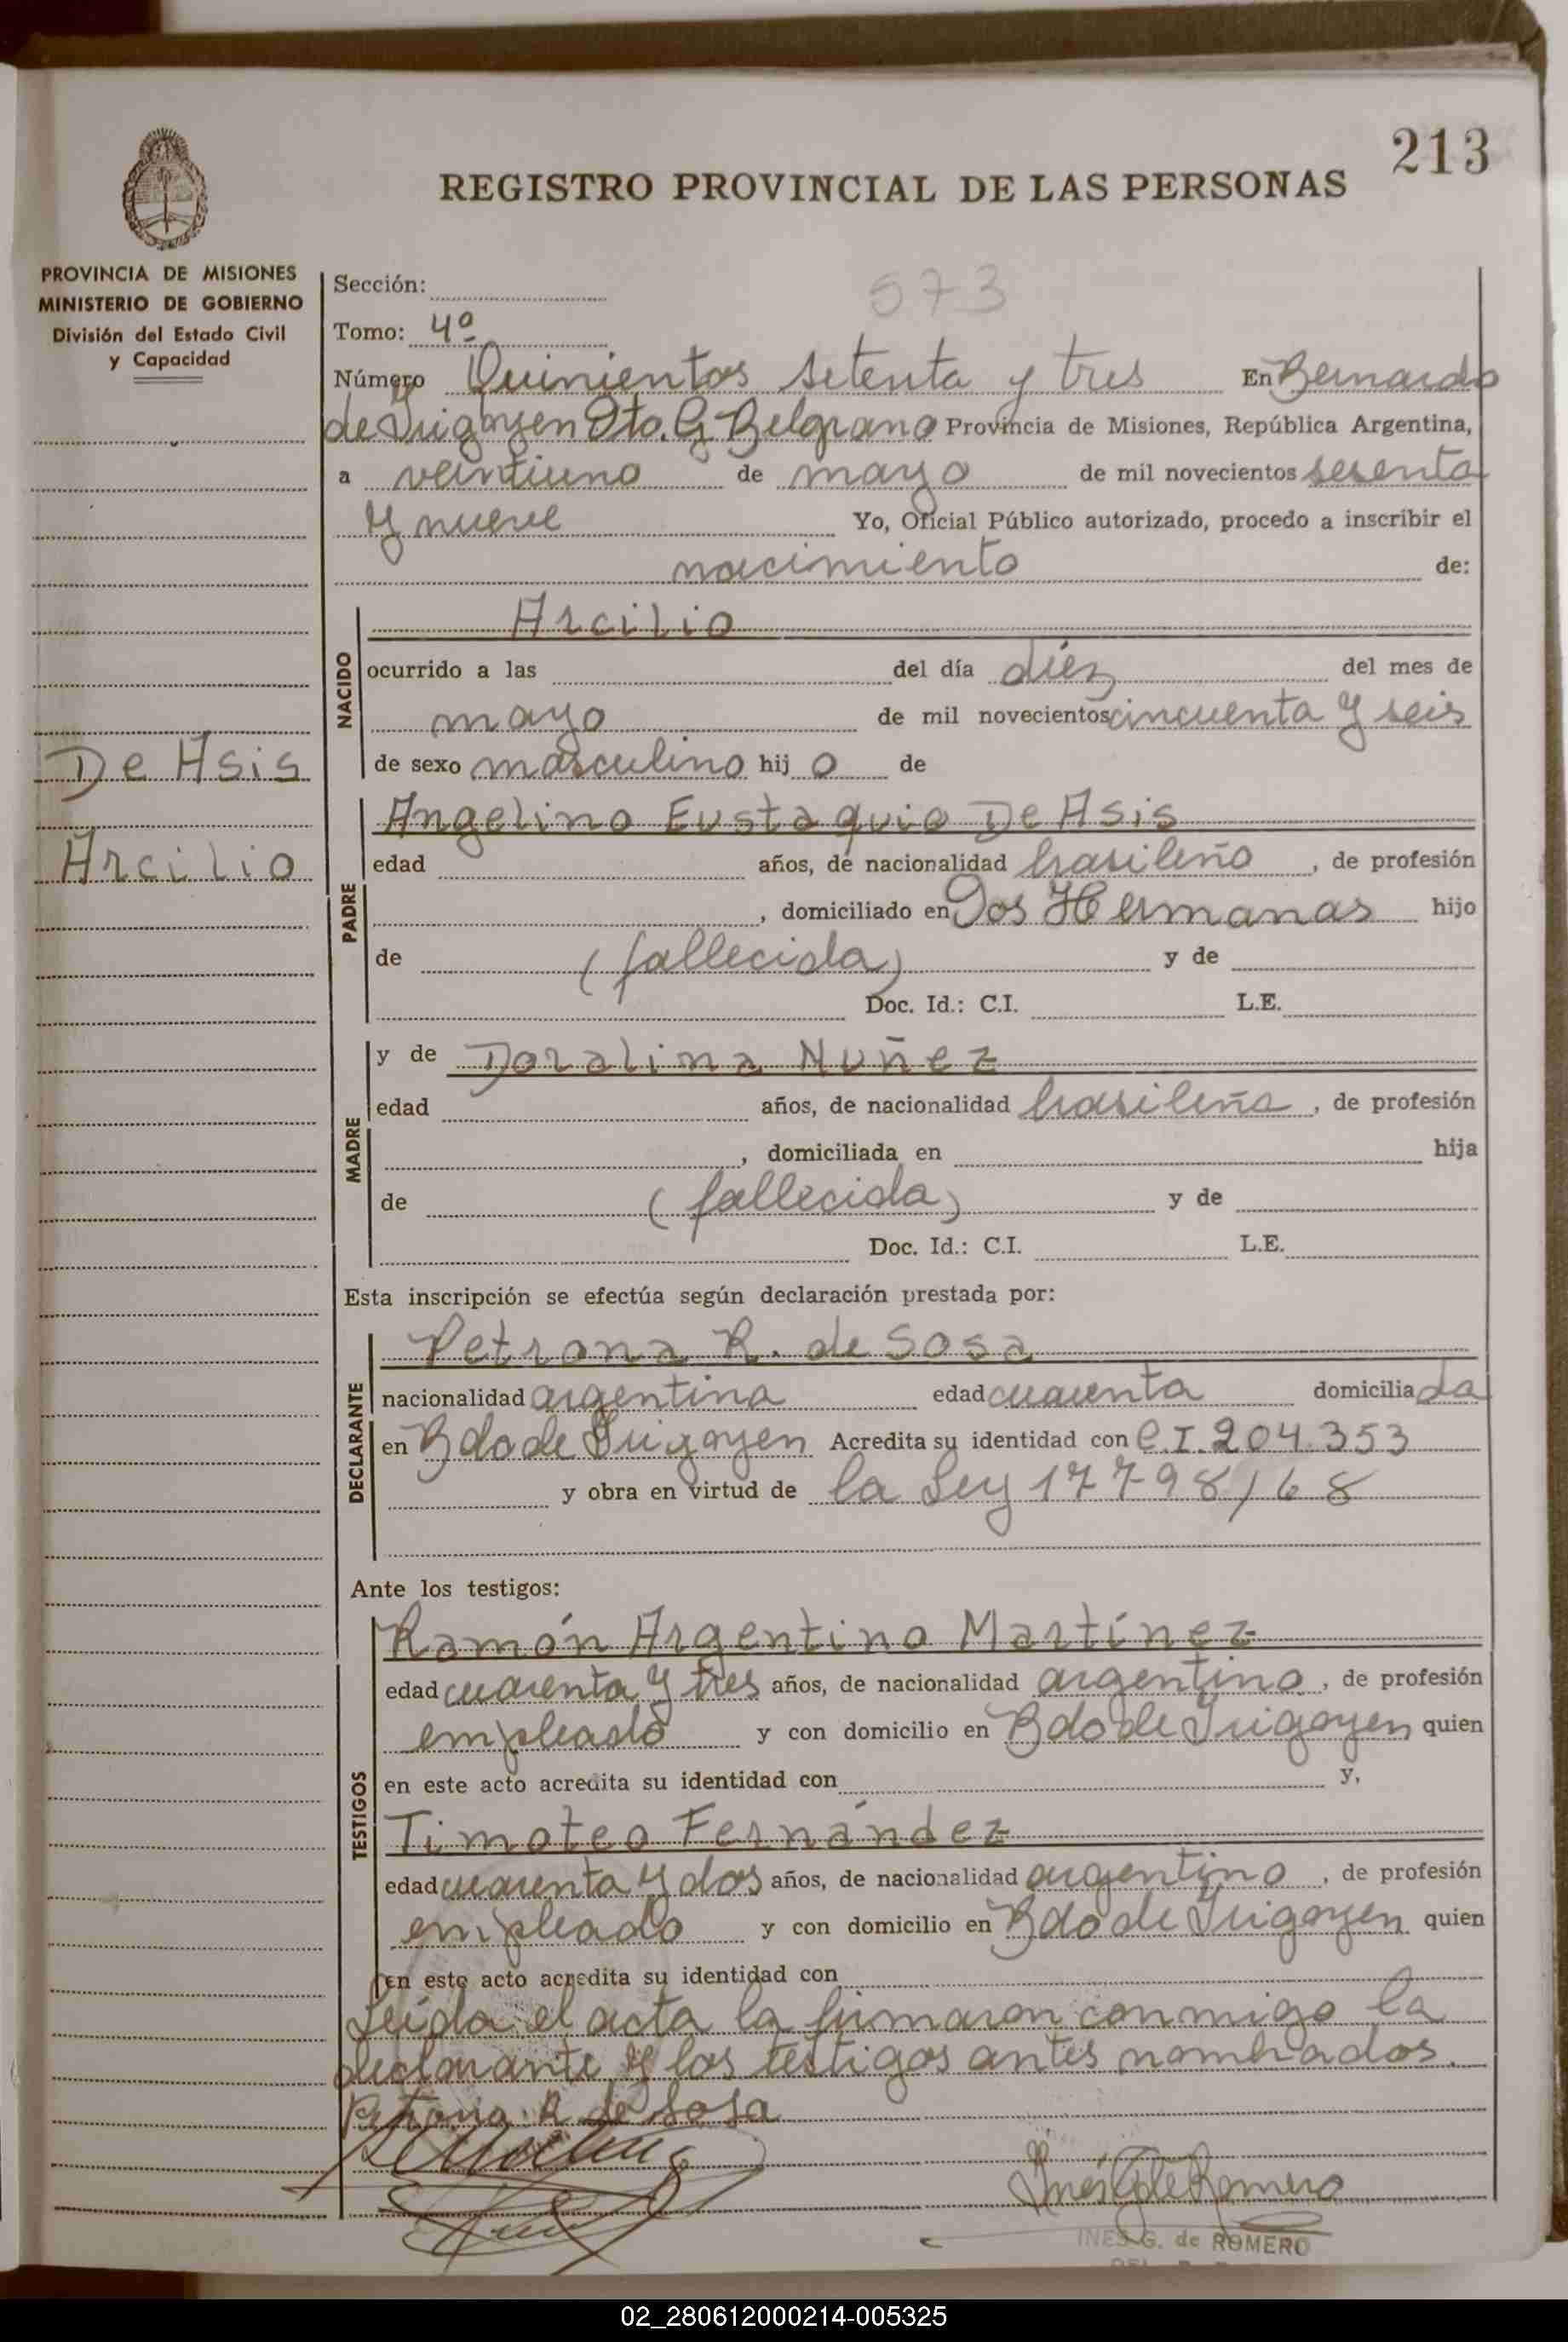 213
REGISTRO PROVINCIAL DE LAS PERSONAS
PROVINCIA DE MISIONES
MINISTERIO DE GOBIERNO
División del Estado Civil
y Capacidad
De Asis
Arcilio
573
Sección:
Tomo: 4º
Número Quinientos setenta y tres En Bernardo
de Irigoyen Dto. G. Belgrano Provincia de Misiones, República Argentina,
a veintiuno de mayo de mil novecientos sesenta
y nueve Yo, Oficial Público autorizado, procedo a inscribir el
nacimiento de:
NACIDO
Arcilio
ocurrido a las del día diez del mes de
mayo de mil novecientos cincuenta y seis
de sexo masculino hij o de
PADRE
Angelino Eustaquio De Asis
edad años, de nacionalidad brasileño, de profesión
, domiciliado en Dos Hermanas hijo
de (fallecida) y de
Doc. Id.: C.I. L.E.
MADRE
y de Doralina Nuñez
edad años, de nacionalidad brasileña, de profesión
, domiciliada en hija
de (fallecida) y de
Doc. Id.: C.I. L.E.
Esta inscripción se efectúa según declaración prestada por:
DECLARANTE
Petrona R. de Sosa
nacionalidad argentina edad cuarenta domicilia da
en Bdo de Irigoyen Acredita su identidad con C.I. 204.353
y obra en virtud de la Ley 17798/68
Ante los testigos:
TESTIGOS
Ramón Argentino Martínez
edad cuarenta y tres años, de nacionalidad argentino, de profesión
empleado y con domicilio en Bdo de Irigoyen quien
en este acto acredita su identidad con y,
Timoteo Fernández
edad cuarenta y dos años, de nacionalidad argentino, de profesión
empleado y con domicilio en Bdo de Irigoyen quien
en este acto acredita su identidad con
Leída el acta la firmaron conmigo la
declarante y los testigos antes nombrados.
Petrona R de Sosa
Inés G de Romero
INES G. de ROMERO
02_280612000214-005325